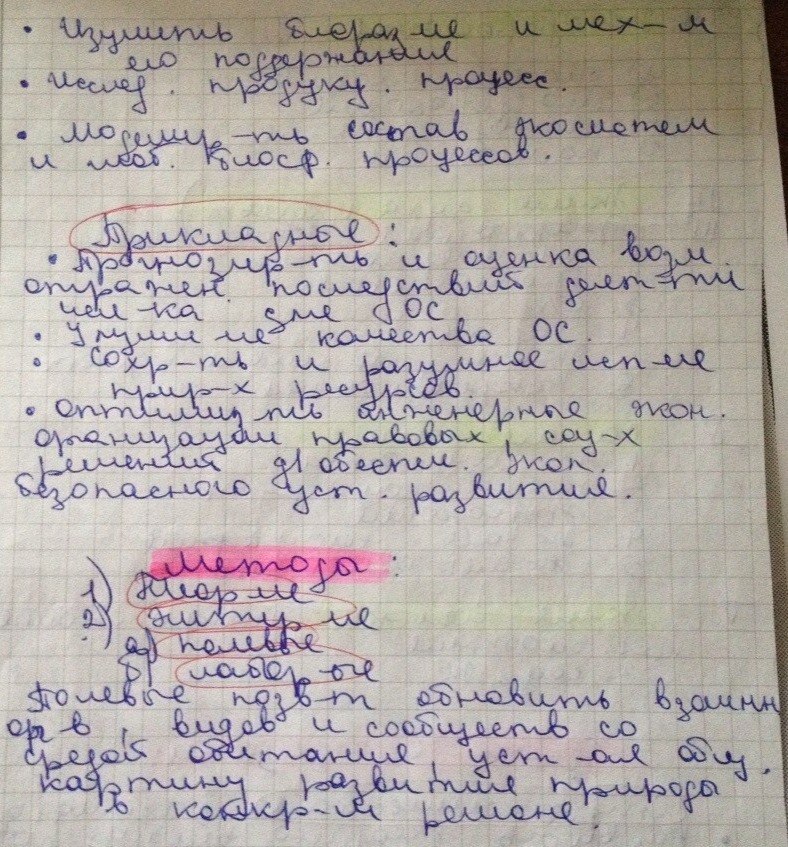 • Изучить биоразн-ие и мех-м
его поддержания
• Исслед. продукц. процесс.
• Моделир-ть состав экосистем
и глоб. биосф. процессов.
Прикладные:
• Прогнозир-ть и оценка возм.
отражен. последствий деят-ти
чел-ка для ОС
• Улучшение качества ОС.
• Сохр-ть и разумное исп-ие
прир-х ресурсов.
• Оптимиз-ть инженерные экон.
организации правовых, соц-х
решений д/обеспеч. экол.
безопасного уст. развития.
Методы:
1)
2)
а) полевые
б) лабор-ые
Полевые позв-т обновить взаимн
орг-в, видов и сообществ со
средой обитания, уст-ся общ.
картину развития природы
в конкр-м регионе.